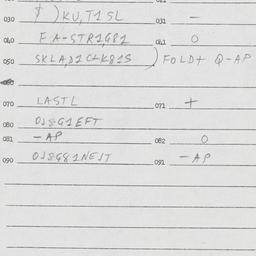 030 $ )KU,T1SL 031 —
040 FA-STR1,G81 041 O
050 SKLA,D1CLK81S ) FOLD+ Q-AP
070 LASTL 071 +
080 OJ8G1EFT
081 -AP 082 O
090 OJ8G81NEJT 091 -AP